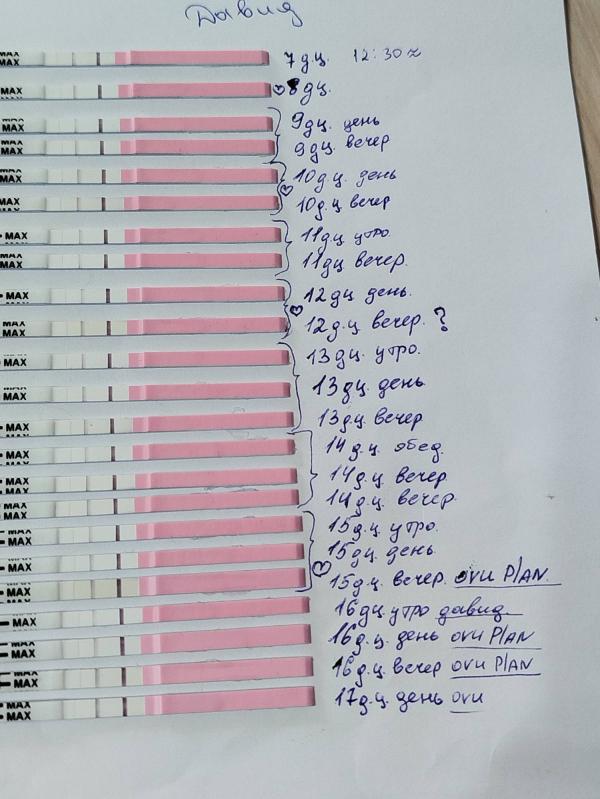 Давид
MAX
MAX 7 д.ц. 12:30 z
MAX
MAX 8 дц.
MAX
MAX 9 дц. день
MAX
MAX 9 дц. вечер
MAX 10 дц. день
MAX 10 д.ц вечер
MAX 11 дц утро
MAX 11 дц вечер.
MAX 12 дц день.
MAX 12 д.ц вечер. ?
MAX 13 дц. утро.
MAX 13 дц. день
MAX 13 дц. вечер
MAX 14 д.ц. обед.
MAX 14 дц. вечер
MAX 14 д.ц. вечер.
MAX
MAX 15 д.ц. утро.
MAX
MAX 15 дц. день.
MAX
MAX 15 д.ц. вечер. OVU PLAN.
MAX 16 дц утро давид.
MAX
MAX 16 д.ц. день OVU PLAN
MAX
MAX 16 д.ц вечер OVU PLAN
MAX
MAX 17 д.ц. день OVU